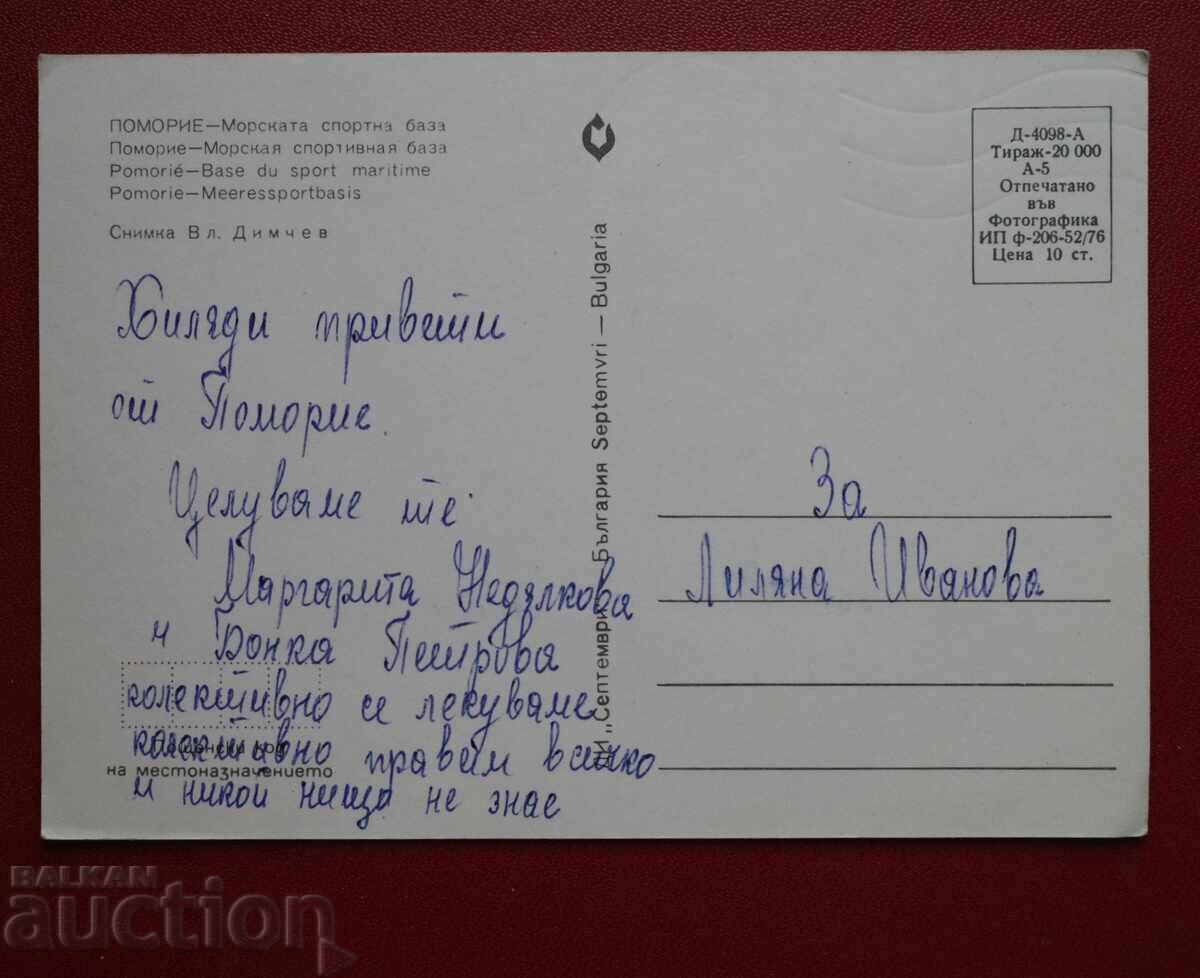 ПОМОРИЕ—Морската спортна база
Поморие—Морская спортивная база
Pomorié—Base du sport maritime
Pomorie—Meeressportbasis
Снимка Вл. Димчев
Хиляди привети
от Поморие.
Целуваме те
Маргарита Недялкова
и Бонка Петрова
колективно се лекуваме
колективно правим всичко
и никой нищо не знае
Пощенски код
на местоназначението
ДИ „Септември“ — България Septemvri — Bulgaria
Д-4098-А
Тираж-20 000
А-5
Отпечатано
във
Фотографика
ИП ф-206-52/76
Цена 10 ст.
За
Лиляна Иванова
BALKAN
auction